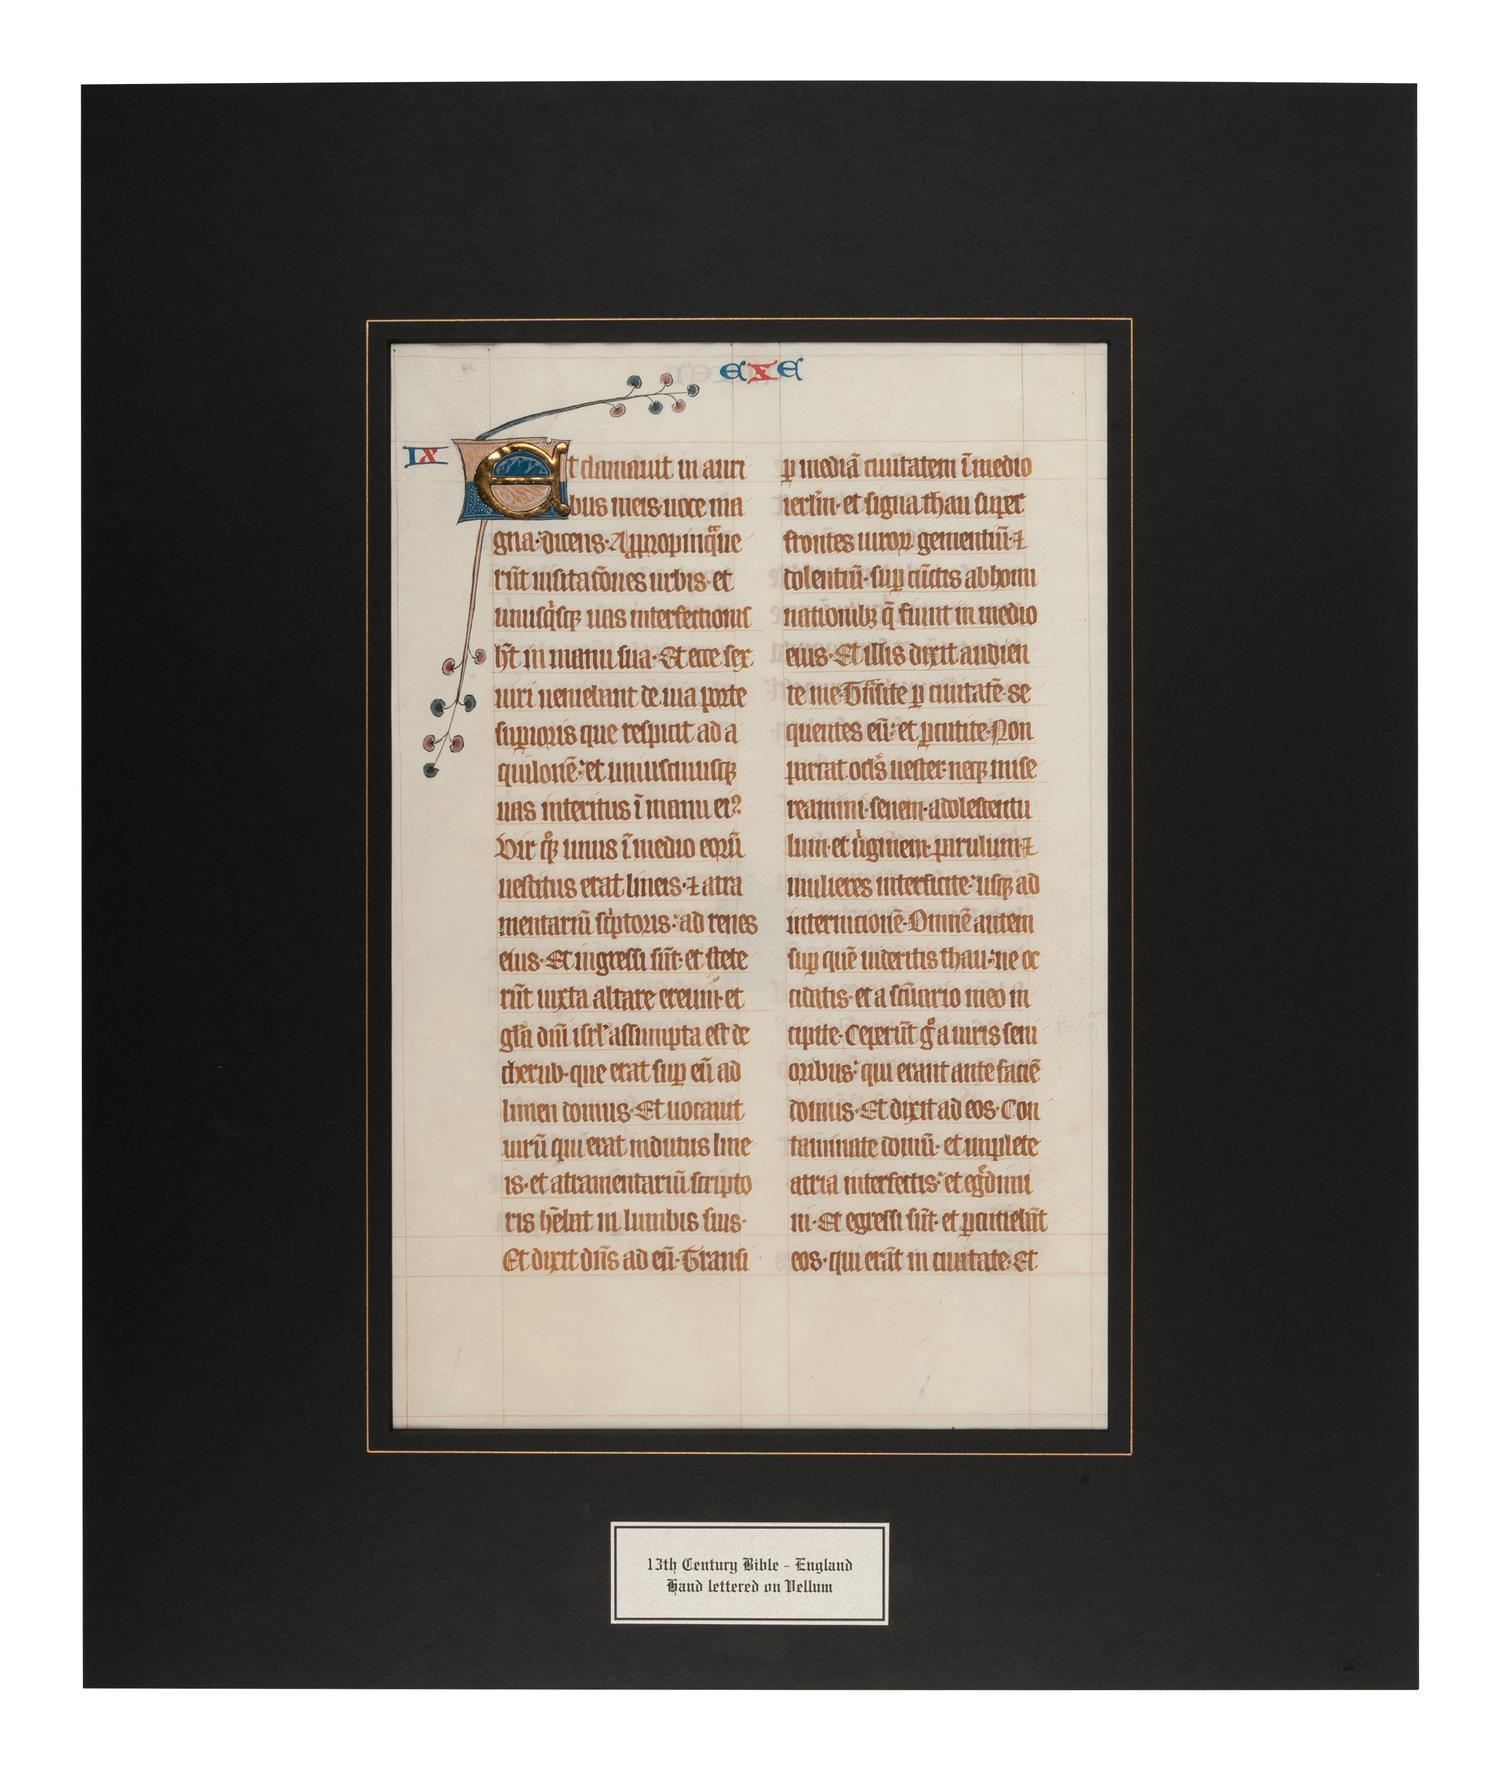 EXE
IX
Et clamauit in auri
bus meis· uoce ma
gna· dicens· Appropinq̃ue
rūt uisitatōnes urbis· et
unusq̇sq̨ uas interfectionis
hn̄t in manu sua· Et ecce sex
uiri ueniebant de uia porte
suꝑioris que respicit ad a
quilonē· et uniuscuiusq̨
uas interitus ī manu ei?
Vir q̊q̨ unus ī medio eorū
uestitus erat lineis· ⁊ atra
mentariū sċptoris· ad renes
eius· Et ingressi sūt· et stete
rūt iuxta altare ereum· et
gl̄a dn̄i isrl’ assumpta est de
cherub· que erat suꝑ eū ad
limen domus· Et uocauit
uirū qui erat indutus line
is· et attramentariū scripto
ris hēbat in lumbis suis·
Et dixit dn̄s ad eū· Transi
ꝑ mediā ciuitatem ī medio
ierl̄m· et signa thau super
frontes uiroꝝ gementiū· ⁊
dolentiū· suꝑ cūctis abhomi
nationibꝫ q̄ fiunt in medio
eius· Et illis dixit audien
te me· Trāsite ꝑ ciuitatē· se
quentes eū· et ꝑcutite· Non
parcat oc̄ls uester· neq̨ mise
reamini· senem· adolescentu
lum· et ùginem· paruulum· ⁊
mulieres interficite· usq̨ ad
internicionē· Omnē autem
suꝑ quē uideritis thau· ne oc
cidatis· et a sc̄uario meo in
cipite· Ceperūt g̊ a uiris seni
oribus· qui erant ante faciē
domus· Et dixit ad eos· Con
taminate domū· et implete
atria interfectis· et eg̊dimi
ni· Et egressi sūt· et ꝑcutiebāt
eos· qui erāt in ciuitate· Et
13th Century Bible - England
Hand lettered on Vellum